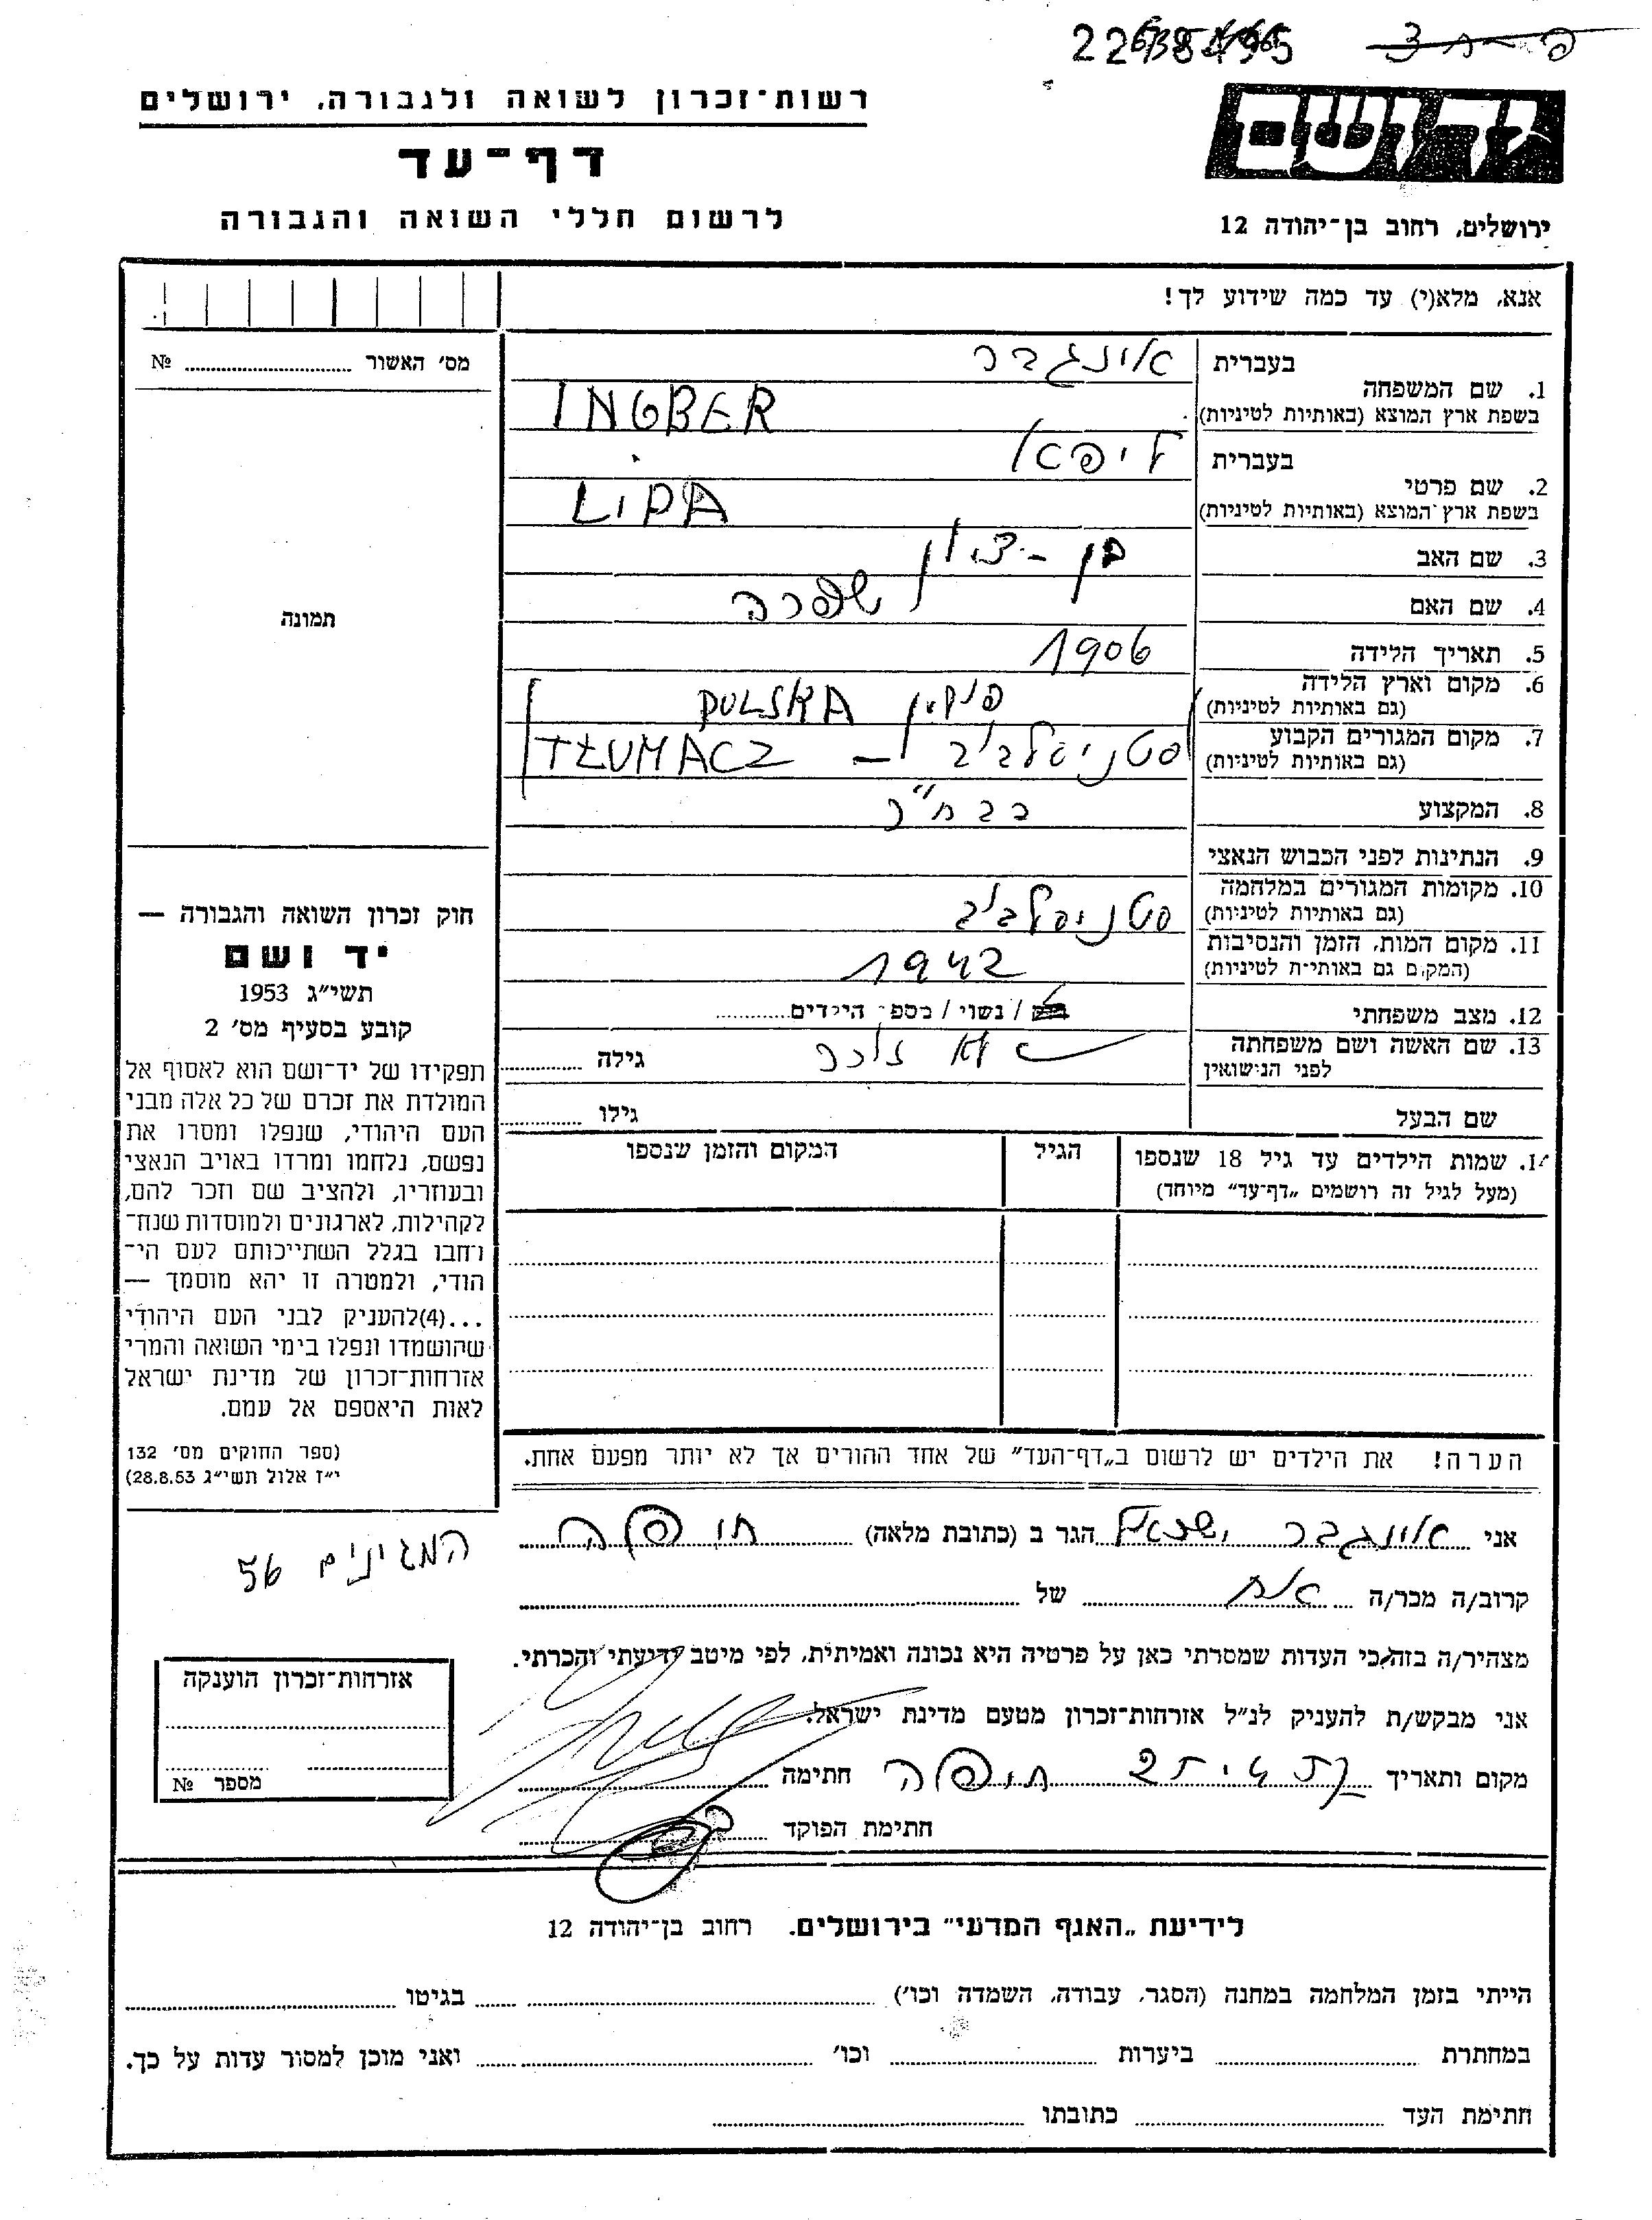 רשות־זכרון לשואה ולגבורה, ירושלים
דף־עד
לרשום חללי השואה והגבורה
יד ושם
ירושלים, רחוב בן־יהודה 12
אנא, מלא(י) עד כמה שידוע לך!
מס׳ האשור № 
תמונה
1. שם המשפחה
בעברית אינגבר
בשפת ארץ המוצא (באותיות לטיניות) INGBER
2. שם פרטי
בעברית ליפא
בשפת ארץ המוצא (באותיות לטיניות) LIPA
3. שם האב בן - ציון
4. שם האם שפרה
5. תאריך הלידה 1906
6. מקום וארץ הלידה פולין POLSKA
(גם באותיות לטיניות)
7. מקום המגורים הקבוע סטניסלביב – TŁUMACZ
(גם באותיות לטיניות)
8. המקצוע
9. הנתינות לפני הכבוש הנאצי
10. מקומות המגורים במלחמה סטניסלביב
(גם באותיות לטיניות)
11. מקום המות, הזמן והנסיבות 1942
(המקום גם באותיות לטיניות)
12. מצב משפחתי רוק / נשוי / מספר הילדים
13. שם האשה ושם משפחתה לא זוכר גילה
לפני הנישואין
שם הבעל גילו
14. שמות הילדים עד גיל 18 שנספו הגיל המקום והזמן שנספו
(מעל לגיל זה רושמים „דף־עד” מיוחד)
הערה! את הילדים יש לרשום ב„דף־העד” של אחד ההורים אך לא יותר מפעם אחת.
חוק זכרון השואה והגבורה —
יד ושם
תשי״ג 1953
קובע בסעיף מס׳ 2
תפקידו של יד־ושם הוא לאסוף אל
המולדת את זכרם של כל אלה מבני
העם היהודי, שנפלו ומסרו את
נפשם, נלחמו ומרדו באויב הנאצי
ובעוזריו, ולהציב שם וזכר להם,
לקהילות, לארגונים ולמוסדות שנח־
רחבו בגלל השתייכותם לעם הי־
הודי, ולמטרה זו יהא מוסמך —
...(4)להעניק לבני העם היהודי
שהושמדו ונפלו בימי השואה והמרי
אזרחות־זכרון של מדינת ישראל
לאות היאספם אל עמם.
(ספר החוקים מס׳ 132
י״ז אלול תשי״ג 28.8.53)
אני אינגבר ישראל הגר ב (כתובת מלאה) חיפה
המגינים 56
קרוב/ה מכר/ה אח של
מצהיר/ה בזה כי העדות שמסרתי כאן על פרטיה היא נכונה ואמיתית, לפי מיטב ידיעתי והכרתי.
אני מבקש/ת להעניק לנ״ל אזרחות־זכרון מטעם מדינת ישראל.
מקום ותאריך חיפה חתימה
חתימת הפוקד
אזרחות־זכרון הוענקה
מספר №
לידיעת „האגף המדעי” בירושלים. רחוב בן־יהודה 12
הייתי בזמן המלחמה במחנה (הסגר, עבודה, השמדה וכו׳) בגיטו
במחתרת ביערות וכו׳ ואני מוכן למסור עדות על כך.
חתימת העד כתובתו